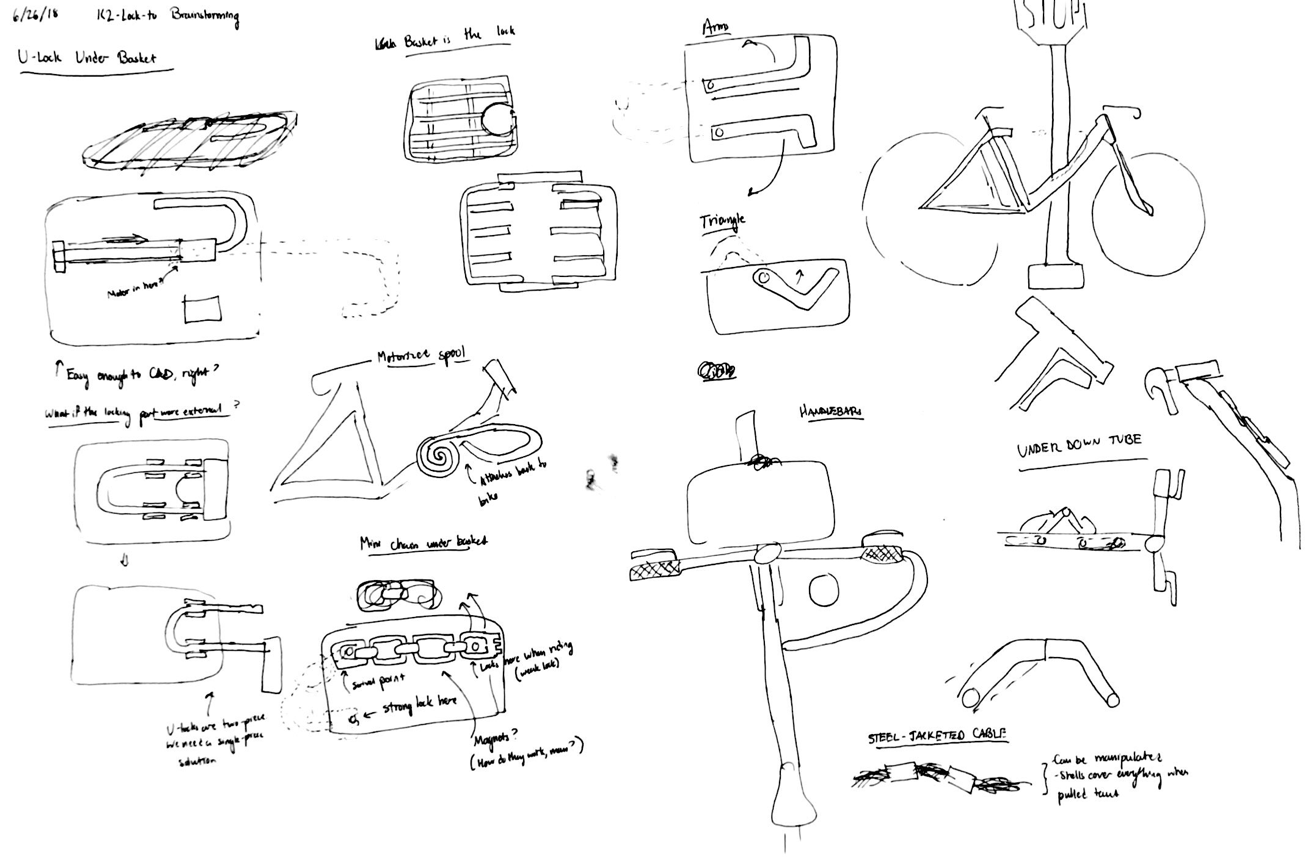 6/26/18 K2-Lock-to Brainstorming
U-Lock Under Basket
Motor in here?
Easy enough to CAD, right?
What if the locking part were external?
U-locks are two-piece
We need a single-piece
solution
Basket is the lock
Motorized spool
Attaches back to
bike
Mini chain under basket
Swivel point
Locks here when riding
(weak lock)
strong lock here
Magnets?
(How do they work, man?)
Arms
Triangle
HANDLEBARS
STOP
UNDER DOWN TUBE
STEEL-JACKETED CABLE
Can be manipulated
-Shells cover everything when
pulled taut